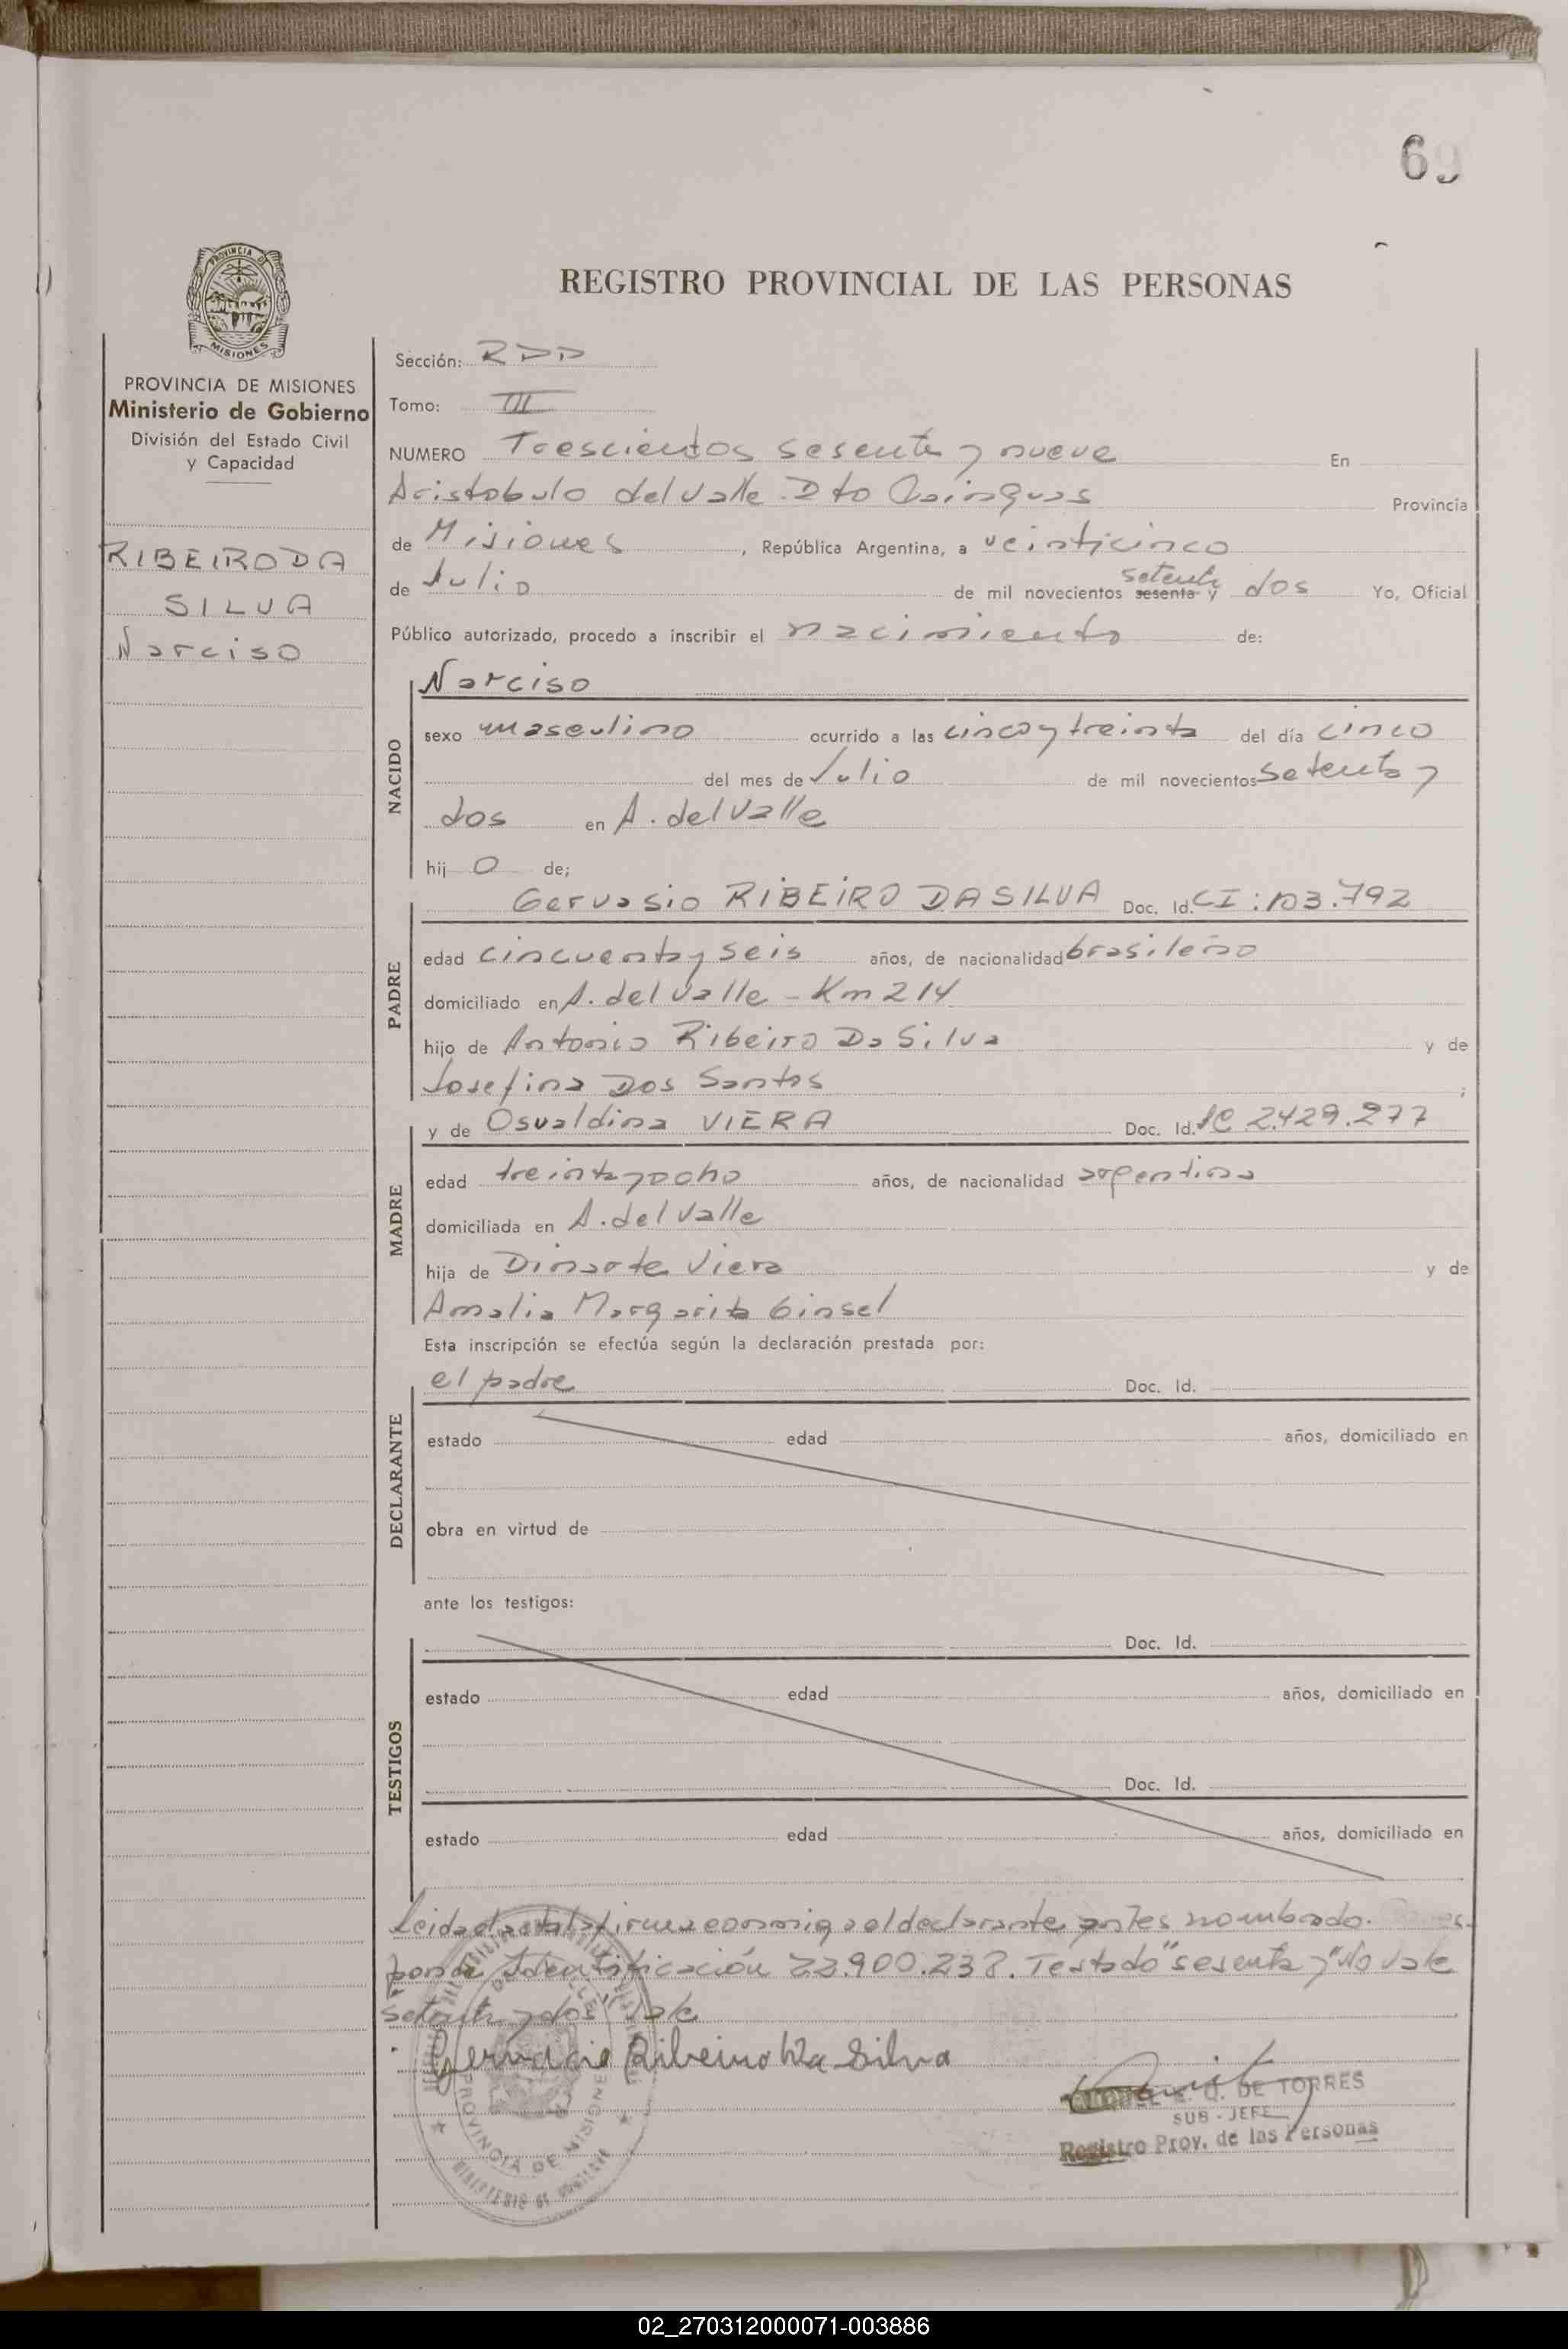 69
REGISTRO PROVINCIAL DE LAS PERSONAS
PROVINCIA DE MISIONES
Ministerio de Gobierno
División del Estado Civil
y Capacidad
RIBEIRO DA
SILVA
Narciso
Sección: RDD
Tomo: III
NUMERO Trescientos sesenta y nueve En
Aristobulo del Valle Dto Cainguas Provincia
de Misiones, República Argentina, a veinticinco
de Julio de mil novecientos sesenta y setenta y dos Yo, Oficial
Público autorizado, procedo a inscribir el nacimiento de:
NACIDO
Narciso
sexo masculino ocurrido a las cinco y treinta del día cinco
del mes de Julio de mil novecientos setenta y
dos en A. del Valle
hij o de;
PADRE
Gervasio RIBEIRO DA SILVA Doc. Id. CI: 103.792
edad cincuenta y seis años, de nacionalidad brasileño
domiciliado en A. del Valle - Km 214
hijo de Antonio Ribeiro Da Silva y de
Josefina Dos Santos ;
MADRE
y de Osvaldina VIERA Doc. Id. LC 2.429.277
edad treinta y ocho años, de nacionalidad argentina
domiciliada en A. del Valle
hija de Dinarte Viera y de
Amalia Margarita Ginsel
Esta inscripción se efectúa según la declaración prestada por:
DECLARANTE
el padre Doc. Id.
estado edad años, domiciliado en
obra en virtud de
ante los testigos:
TESTIGOS
Doc. Id.
estado edad años, domiciliado en
Doc. Id.
estado edad años, domiciliado en
Leida el acta la firma conmigo el declarante antes nombrado.
ponde Identificación 22.900.238. Testado "sesenta y" No vale
setenta y dos" Vale
Ribeiro Da Silva
DE TORRES
SUB - JEFE
Registro Prov. de las Personas
PROVINCIA DE MISIONES
MINISTERIO DE GOBIERNO
02_270312000071-003886